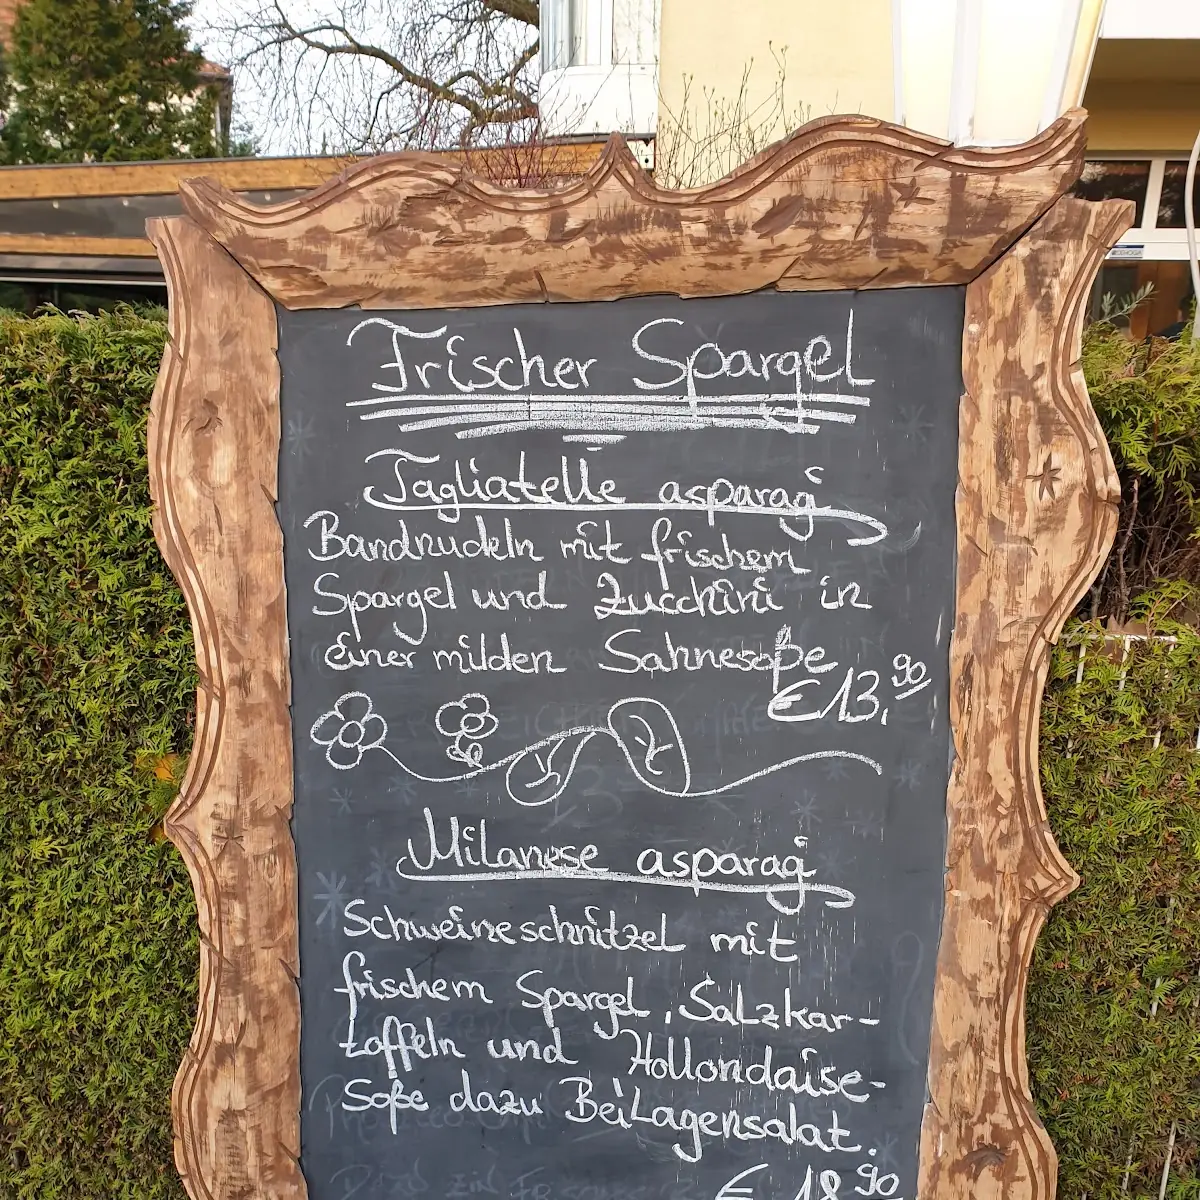 Frischer Spargel
Tagliatelle asparagi
Bandnudeln mit frischem
Spargel und Zucchini in
einer milden Sahnesoße
€13,90
Milanese asparagi
Schweineschnitzel mit
frischem Spargel, Salzkar-
toffeln und Hollondaise-
Soße dazu Beilagensalat.
€ 18,90